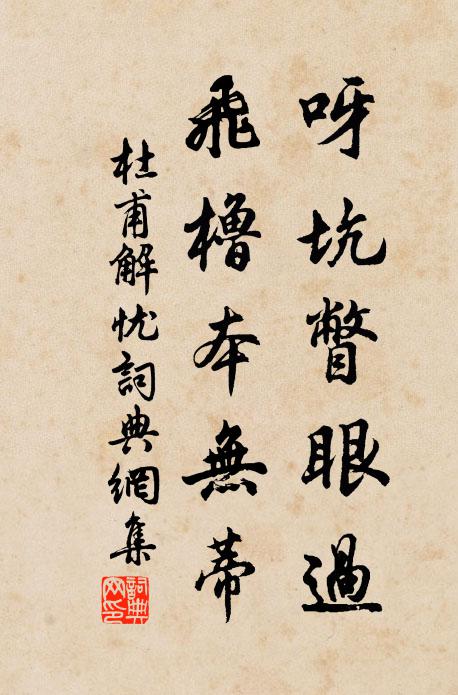 呀坑瞥眼過
飛櫓本無蒂
杜甫解忧詞典網集
詞典網印